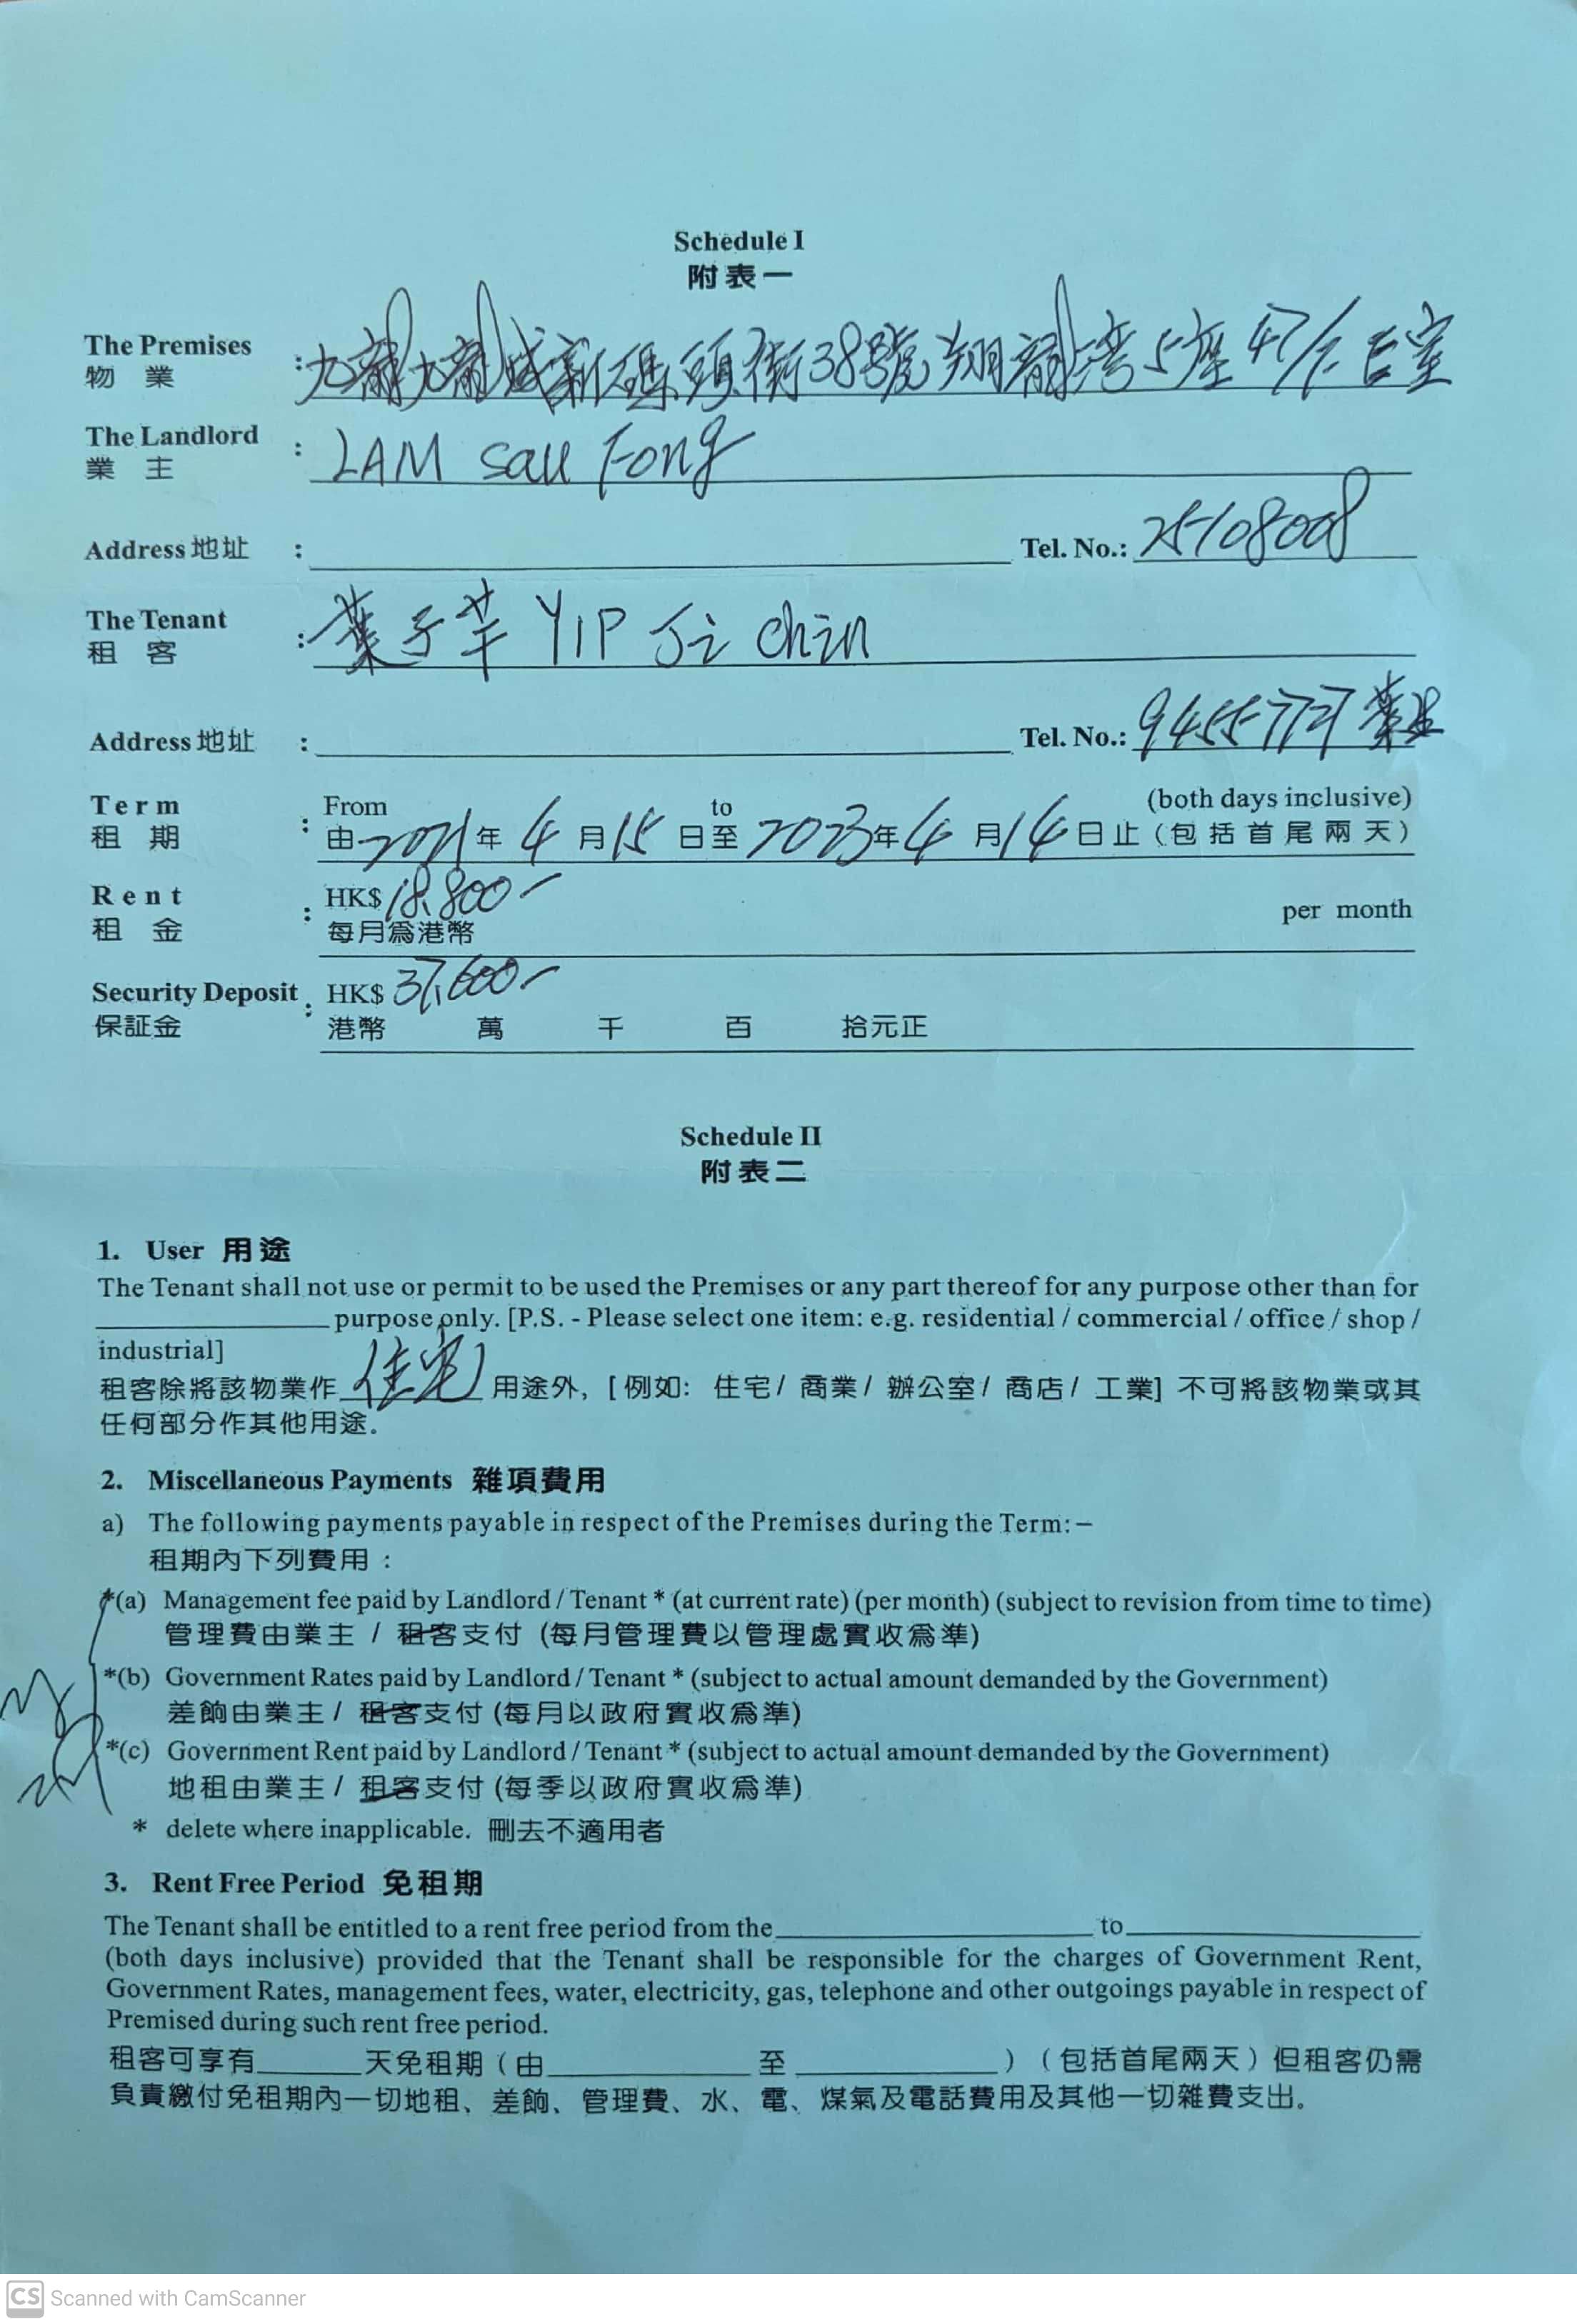 Schedule I
附表一
The Premises
物業
: 九龍九龍城新碼頭街38號翔龍灣5座47/F E室
The Landlord
業主
: LAM Sau Fong
Address 地址 : Tel. No.: 25108008
The Tenant
租客
: 葉子芊 YIP Ji Chin
Address 地址 : Tel. No.: 9455 7727 葉
Term From to (both days inclusive)
租期 : 由2021年4月15日至2023年4月14日止(包括首尾兩天)
Rent : HK$18,800- per month
租金 每月為港幣
Security Deposit : HK$37,600-
保証金 港幣 萬 千 百 拾元正
Schedule II
附表二
1. User 用途
The Tenant shall not use or permit to be used the Premises or any part thereof for any purpose other than for
purpose only. [P.S. - Please select one item: e.g. residential / commercial / office / shop /
industrial]
租客除將該物業作住宅用途外, [例如: 住宅/ 商業/ 辦公室/ 商店/ 工業] 不可將該物業或其
任何部分作其他用途.
2. Miscellaneous Payments 雜項費用
a) The following payments payable in respect of the Premises during the Term: –
租期內下列費用 :
*(a) Management fee paid by Landlord / Tenant * (at current rate) (per month) (subject to revision from time to time)
管理費由業主 / 租客支付 (每月管理費以管理處實收爲準)
*(b) Government Rates paid by Landlord / Tenant * (subject to actual amount demanded by the Government)
差餉由業主 / 租客支付 (每月以政府實收爲準)
*(c) Government Rent paid by Landlord / Tenant * (subject to actual amount demanded by the Government)
地租由業主 / 租客支付 (每季以政府實收爲準)
* delete where inapplicable. 刪去不適用者
3. Rent Free Period 免租期
The Tenant shall be entitled to a rent free period from the to
(both days inclusive) provided that the Tenant shall be responsible for the charges of Government Rent,
Government Rates, management fees, water, electricity, gas, telephone and other outgoings payable in respect of
Premised during such rent free period.
租客可享有 天免租期 ( 由 至 ) ( 包括首尾兩天 ) 但租客仍需
負責繳付免租期內一切地租、差餉、管理費、水、電、煤氣及電話費用及其他一切雜費支出.
CS Scanned with CamScanner